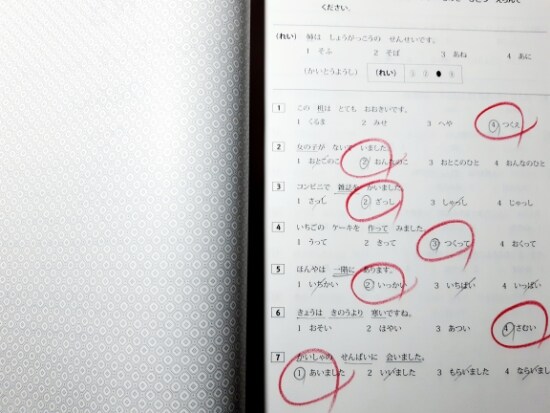 ください。
(れい) 姉は しょうがっこうの せんせいです。
1 そふ 2 そぼ 3 あね 4 あに
(かいとうようし) (れい) ① ② ● ④
1 この 机は とても おおきいです。
1 くるま 2 みせ 3 へや 4 つくえ
2 女の子が ないて いました。
1 おとこのこ 2 おんなのこ 3 おとこのひと 4 おんなのひと
3 コンビニで 雑誌を かいました。
1 さっし 2 ざっし 3 しゃっし 4 じゃっし
4 いちごの ケーキを 作って みました。
1 うって 2 きって 3 つくって 4 おくって
5 ほんやは 一階に あります。
1 いちかい 2 いっかい 3 いちばい 4 いっぱい
6 きょうは きのうより 寒いですね。
1 おそい 2 はやい 3 あつい 4 さむい
7 かいしゃの せんぱいに 会いました。
1 あいました 2 いいました 3 もらいました 4 ならいました